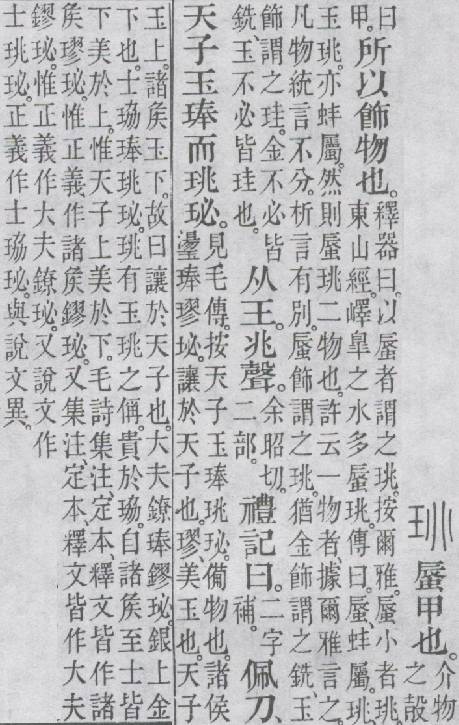 珧 蜃甲也。介物之殼
曰甲。所以飾物也。釋器曰。以蜃者謂之珧。按爾雅。蜃小者珧。
東山經。嶧臯之水多蜃珧。傳曰。蜃、蚌屬。珧
玉珧。亦蚌屬。然則蜃珧二物也。許云一物者、據爾雅言之。
凡物統言不分。析言有別。蜃飾謂之珧。猶金飾謂之銑、玉
飾謂之珪。金不必皆
銑、玉不必皆珪也。从王。兆聲。余昭切。二部。禮記曰。二字補。佩刀、
天子玉琫而珧珌。見毛傳。按天子玉琫珧珌。備物也。諸侯
璗琫璆珌。讓於天子也。璆、美玉也。天子
玉上。諸矦玉下。故曰讓於天子也。大夫鐐琫鏐珌。銀上金
下也。士珕琫珧珌。珧有玉珧之偁。貴於珕。自諸矦至士皆
下美於上。惟天子上美於下。毛詩集注、定本、釋文皆作諸
矦璆珌。惟正義作諸矦鏐珌。又集注、定本、釋文皆作大夫
鏐珌。惟正義作大夫鐐珌。又說文作
士珧珌。正義作士珕珌。與說文異。